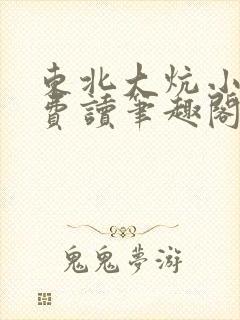 東北大炕小
費讀筆趣閣
鬼鬼夢游